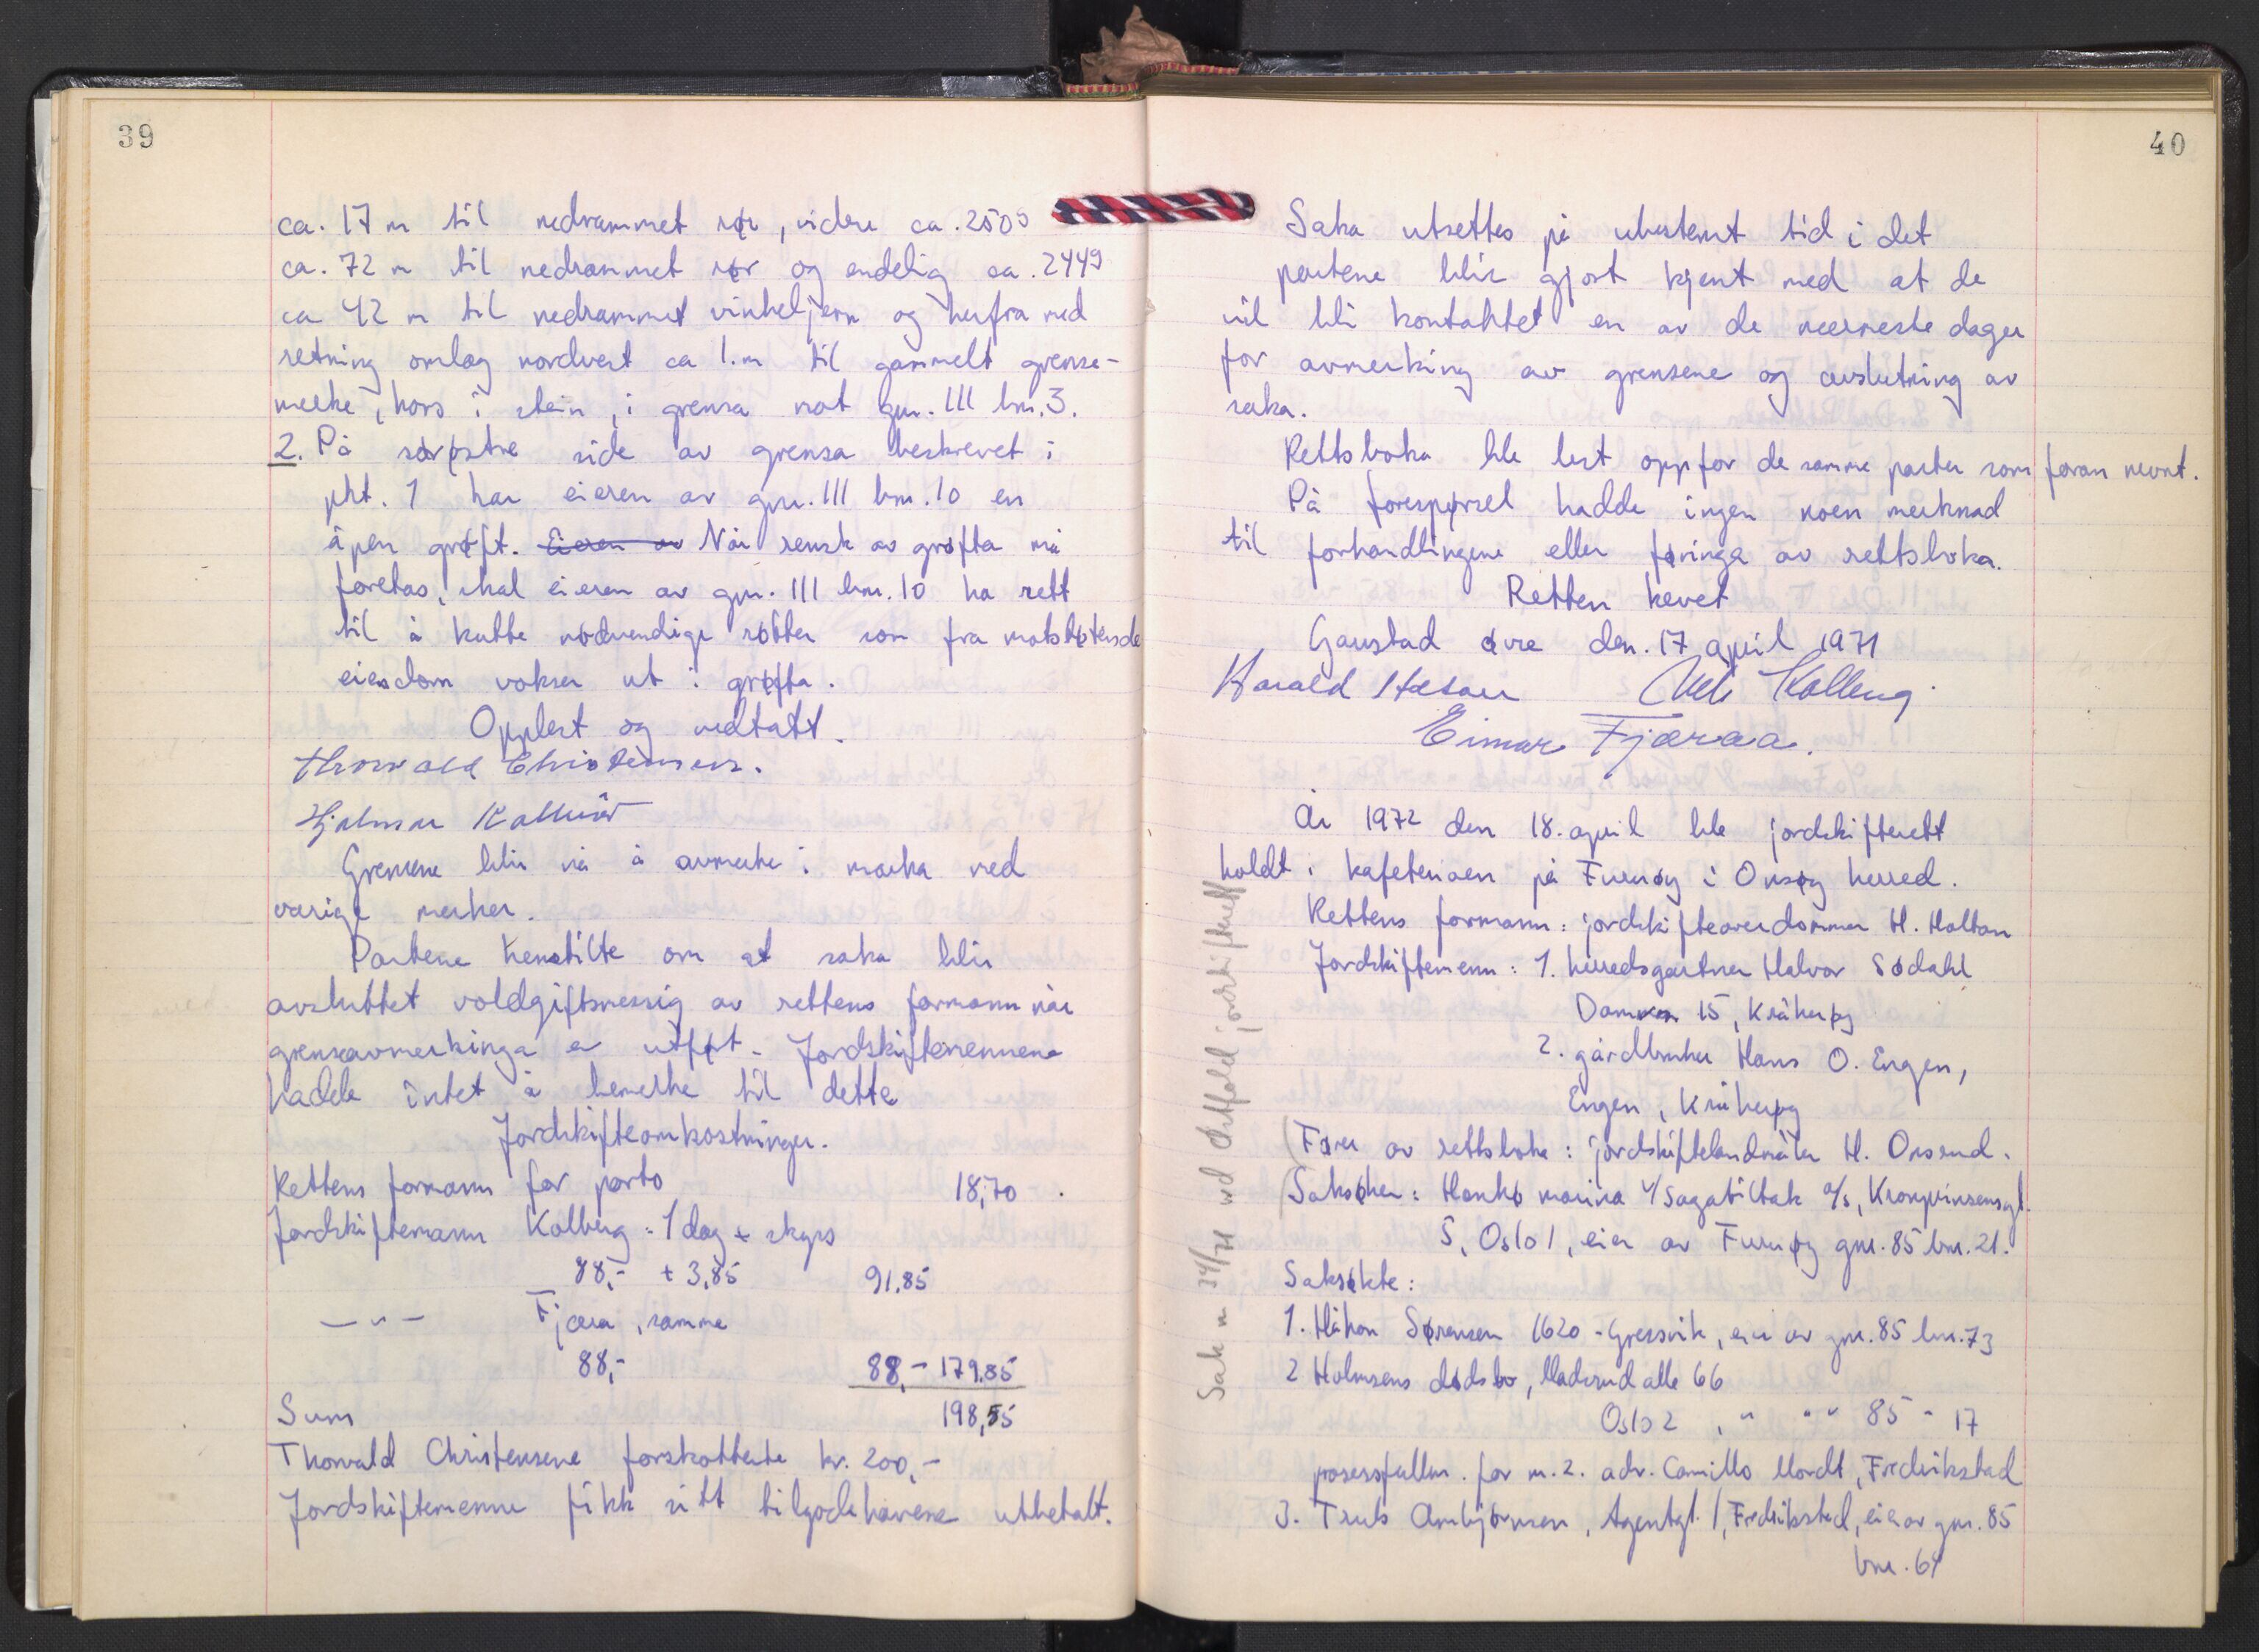 39
ca. 17 m til nedrammet rør, videre ca. 250°
ca. 72 m til nedrammet rør og endelig ca. 244°
ca 42 m til nedrammet vinkeljern og herfra med
retning omlag nordvest ca 1.m til gammelt grense-
merke, kors i stein, i grensa mot gnr. 111 bnr. 3.
2. På sørøstre side av grensa beskrevet i
pkt. 1 har eieren av gnr. 111 bnr. 10 en
åpen grøft. Eieren av Når rensk av grøfta må
foretas, skal eieren av gnr. 111 bnr. 10 ha rett
til å kutte nødvendige røtter som fra motstøtende
eiendom vokser ut i grøfta.
Opplest og vedtatt.
Thorvald Christensen.
Hjalmar
Grensene blir nå å avmerke i marka med
varige merker.
Partene henstilte om at saka blir
avsluttet voldgiftsmessig av rettens formann når
grenseavmerkinga er utført. Jordskiftemennene
hadde intet å bemerke til dette
Jordskifteomkostninger.
Rettens formann for porto 18,70
Jordskiftemann Kolberg: 1 dag + skyss
88,- + 3,85 91,85
— " — Fjæra, samme
88,- 88,- 179,85
Sum 198,55
Thorvald Christensene forskotterte kr. 200,-
Jordskiftemennene fikk sitt tilgodehavene utbetalt.
40
Saka utsettes på ubestemt tid i det
partene blir gjort kjent med at de
vil bli kontaktet en av de nærmeste dager
for avmerking av grensene og avslutning av
saka.
Rettsboka ble lest opp for de samme parter som foran nevnt.
På forespørsel hadde ingen noen merknad
til forhandlingene eller føringa av rettsboka.
Retten hevet
Gaustad øvre den. 17 april 1971
Harald Kolberg
Eimar Fjæraa.
År 1972 den 18. april ble jordskifterett
holdt i kafeteriaen på Furuøy i Onsøy herred.
Rettens formann: jordskifteoverdommer H. Holtan
Jordskiftemenn: 1. herredsgartner Halvor Sødahl
Dammen 15, Kråkerøy
2. gårdbruker Hans O. Engen,
Engen, Kråkerøy
Fører av rettsboka: jordskiftelandmåler H. Onsrud.
Saksøker: Hankø marina v/Sagabiltak a/s, Kronprinsensgt.
5, Oslo 1, eier av Furuøy gnr. 85 bnr. 21.
Saksøkte:
1. Håkon Sørensen 1620 - Gressvik, eier av gnr. 85 bnr. 73
2 Holmsens dødsbo, Madserud alle 66
Oslo 2, " " " 85 - 17
prosessfullm. for nr. 2. adv. Camillo Mordt, Fredrikstad
3. Truls Ambjørnsen, Agentgt. 1, Fredrikstad, eier av gnr. 85
bnr. 64
Sak nr 34/71 ved Østfold jordskifterett